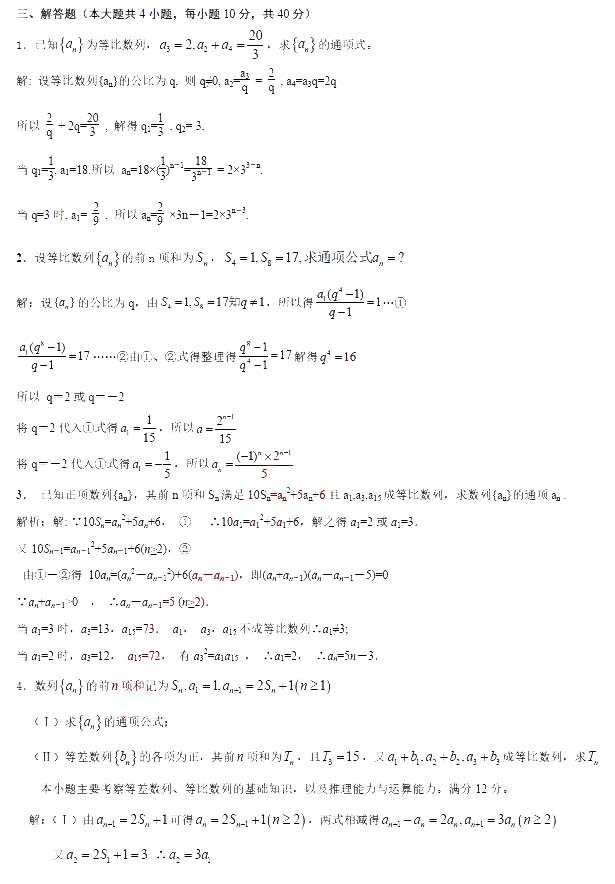 三、解答题（本大题共4小题，每小题10分，共40分）
1. 已知{aₙ}为等比数列，a₃ = 2, a₂ + a₄ = 20/3，求{aₙ}的通项式。
解: 设等比数列{aₙ}的公比为q, 则q≠0, a₂=a₃/q = 2/q , a₄=a₃q=2q
所以 2/q + 2q=20/3 , 解得q₁=1/3 , q₂= 3.
当q₁=1/3, a₁=18.所以 aₙ=18×(1/3)ⁿ⁻¹=18/3ⁿ⁻¹ = 2×3³⁻ⁿ.
当q=3时, a₁= 2/9 , 所以aₙ=2/9 ×3n－1=2×3ⁿ⁻³.
2．设等比数列{aₙ}的前n项和为Sₙ，S₄ = 1, S₈ = 17, 求通项公式aₙ = ?
解：设{aₙ}的公比为q，由S₄ = 1, S₈ = 17知q ≠ 1，所以得a₁(q⁴−1)/(q−1) = 1…①
a₁(q⁸−1)/(q−1) = 17 ……②由①、②式得整理得(q⁸−1)/(q⁴−1) = 17解得q⁴ = 16
所以 q＝2或q＝－2
将q＝2代入①式得a₁ = 1/15，所以a = 2ⁿ⁻¹/15
将q＝－2代入①式得a₁ = −1/5，所以aₙ = (−1)ⁿ × 2ⁿ⁻¹/5
3. 已知正项数列{aₙ}，其前n项和Sₙ满足10Sₙ=aₙ²+5aₙ+6且a₁,a₃,a₁₅成等比数列，求数列{aₙ}的通项aₙ .
解析：解: ∵10Sₙ=aₙ²+5aₙ+6, ① ∴10a₁=a₁²+5a₁+6，解之得a₁=2或a₁=3．
又10Sₙ₋₁=aₙ₋₁²+5aₙ₋₁+6(n≥2)，②
由①－②得 10aₙ=(aₙ²－aₙ₋₁²)+6(aₙ－aₙ₋₁)，即(aₙ+aₙ₋₁)(aₙ－aₙ₋₁－5)=0
∵aₙ+aₙ₋₁>0 ， ∴aₙ－aₙ₋₁=5 (n≥2)．
当a₁=3时，a₃=13，a₁₅=73． a₁， a₃，a₁₅不成等比数列∴a₁≠3;
当a₁=2时，a₃=12， a₁₅=72， 有a₃²=a₁a₁₅ ， ∴a₁=2， ∴aₙ=5n－3．
4．数列{aₙ}的前n项和记为Sₙ, a₁ = 1, aₙ₊₁ = 2Sₙ + 1(n ≥ 1)
（Ⅰ）求{aₙ}的通项公式；
（Ⅱ）等差数列{bₙ}的各项为正，其前n项和为Tₙ，且T₃ = 15，又a₁ + b₁, a₂ + b₂, a₃ + b₃成等比数列，求Tₙ
本小题主要考察等差数列、等比数列的基础知识，以及推理能力与运算能力。满分12分。
解:（Ⅰ）由aₙ₊₁ = 2Sₙ + 1可得aₙ = 2Sₙ₋₁ + 1(n ≥ 2)，两式相减得aₙ₊₁ − aₙ = 2aₙ, aₙ₊₁ = 3aₙ(n ≥ 2)
又a₂ = 2S₁ + 1 = 3 ∴a₂ = 3a₁